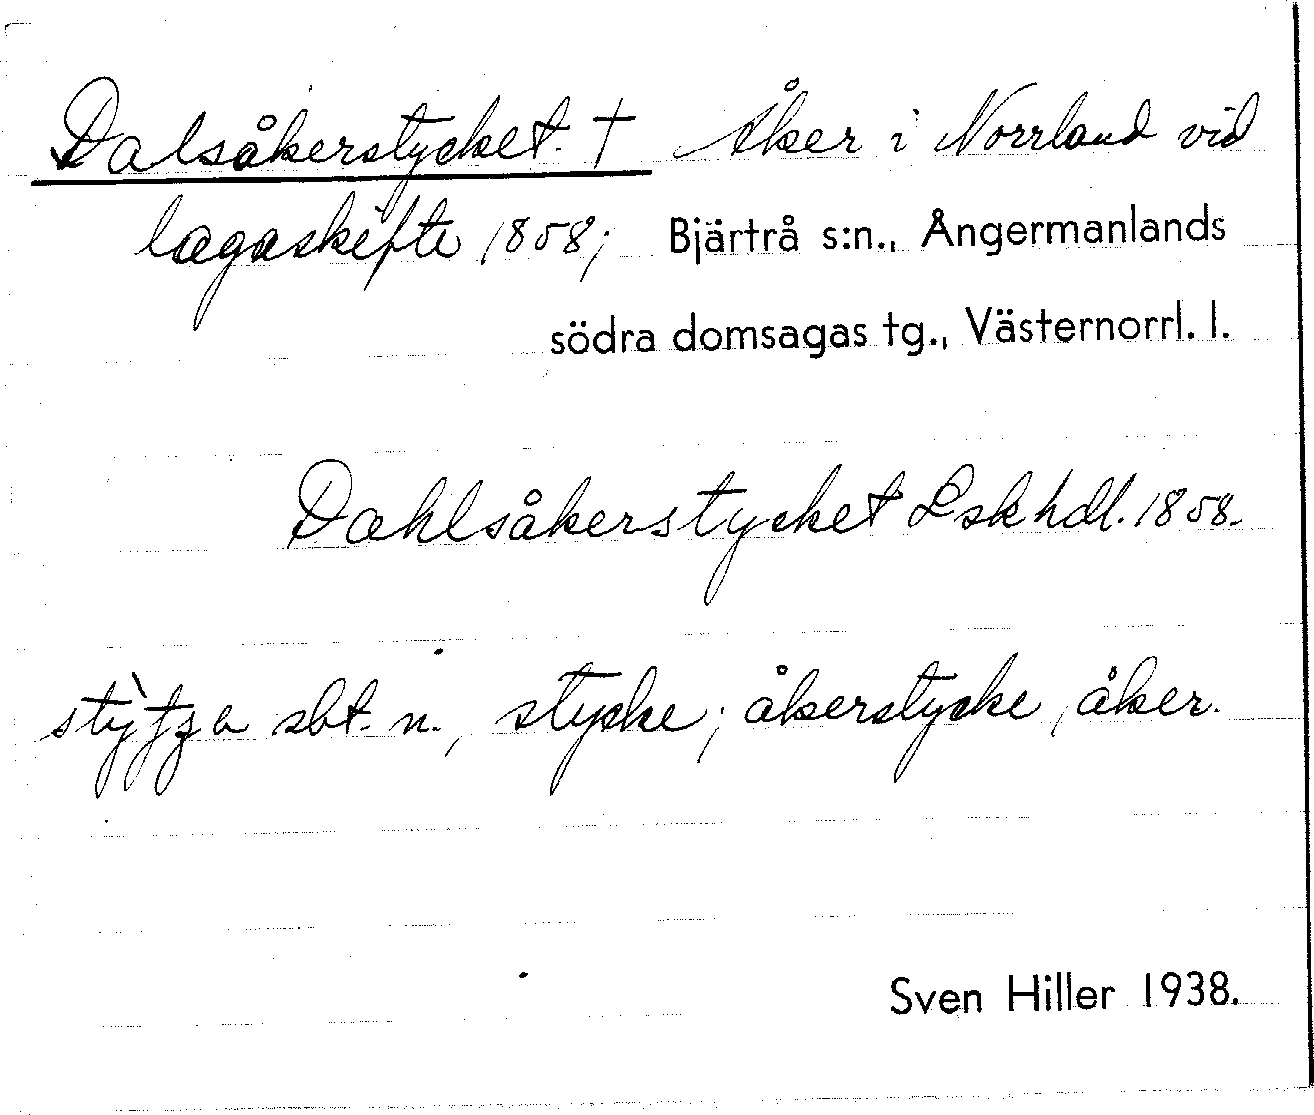 Dalsåkerstycket. † Åker i Norrland vid
lagaskifte 1858; Bjärtrå s:n., Ångermanlands
södra domsagas tg., Västernorrl. l.
Dahlsåkerstycket Lskhdl. 1858.
sbt. n., stycke; åkerstycke, åker.
Sven Hiller 1938.